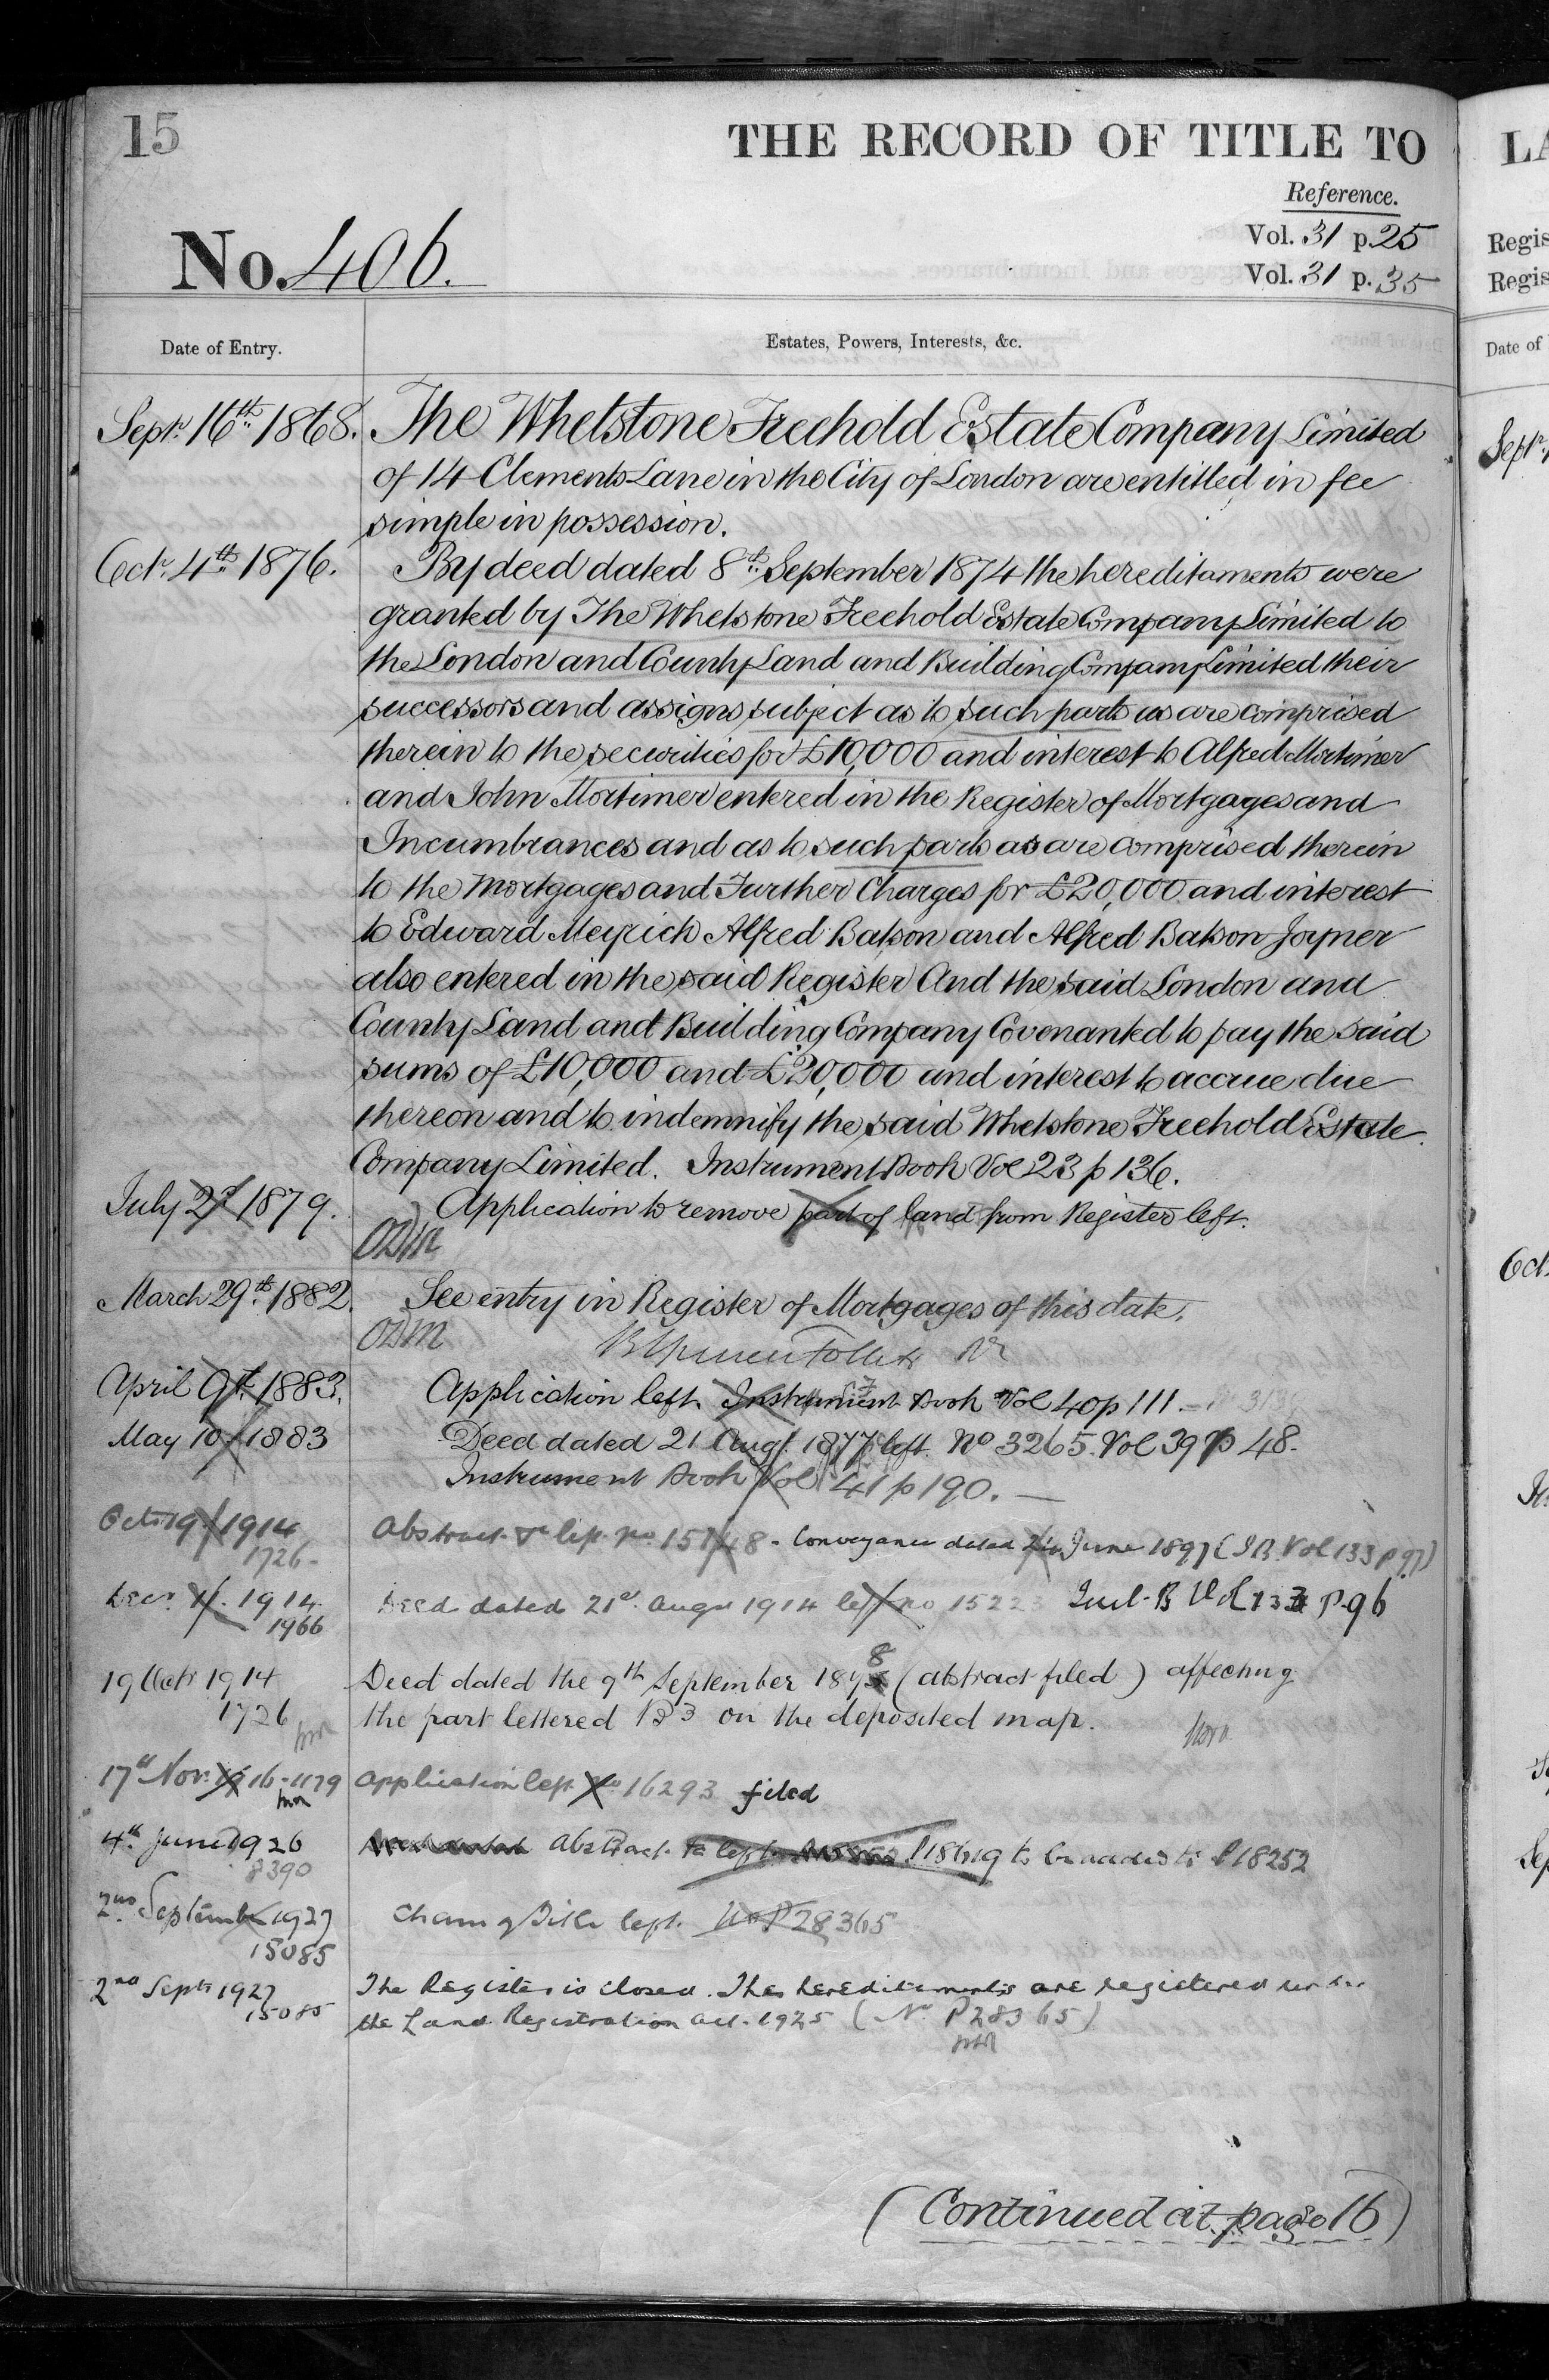 15
THE RECORD OF TITLE TO
Reference.
No. 406.
Vol. 31 p. 25
Vol. 31 p. 35
Date of Entry.
Estates, Powers, Interests, &c.
Septr. 16th 1868. The Whetstone Freehold Estate Company Limited
of 14 Clements Lane in the City of London are entitled in fee
simple in possession.
Octr. 4th 1876. By deed dated 8th September 1874 the hereditaments were
granted by The Whetstone Freehold Estate Company Limited to
the London and County Land and Building Company Limited their
successors and assigns subject as to such parts as are comprised
therein to the securities for £10,000 and interest to Alfred Mortimer
and John Mortimer entered in the Register of Mortgages and
Incumbrances and as to such parts as are comprised therein
to the Mortgages and Further Charges for £20,000 and interest
to Edward Meyrick Alfred Batson and Alfred Batson Joyner
also entered in the said Register And the said London and
County Land and Building Company Covenanted to pay the said
sums of £10,000 and £20,000 and interest to accrue due
thereon and to indemnify the said Whetstone Freehold Estate
Company Limited. Instrument Book Vol 23 p 136.
July 2d 1879. Application to remove part of land from Register left.
March 29th 1882. See entry in Register of Mortgages of this date.
April 9th 1883. Application left Instrument Book Vol 40 p 111.
May 10 1883 Deed dated 21 Augt. 1877 left No 3265. Vol 39 p 48.
Instrument Book Vol 41 p 190.
Octr 19 1914 Abstract &c left no 15148 - Conveyance dated June 1897 (I.B. Vol 133 p 97)
1726
Decr. 1914 Deed dated 21st Augt 1914 left no 1522 Vol 133 P. 96
1966
19 Octr 1914 Deed dated the 9th September 1898 (abstract filed) affecting
1726 the part lettered B3 on the deposited map.
17th Nov. 1916 - 1179 Application left No 16293 filed
4th June 1926 Abstract &c left P18619 to be added to P18252
8390
2nd September 1927 Chain of Title left No P28365
15085
2nd Septr 1927 The Register is closed. The hereditaments are registered under
15085 the Land Registration Act. 1925 (No P28365)
(Continued at page 16)
LA
Regis
Regis
Date of
Septr.